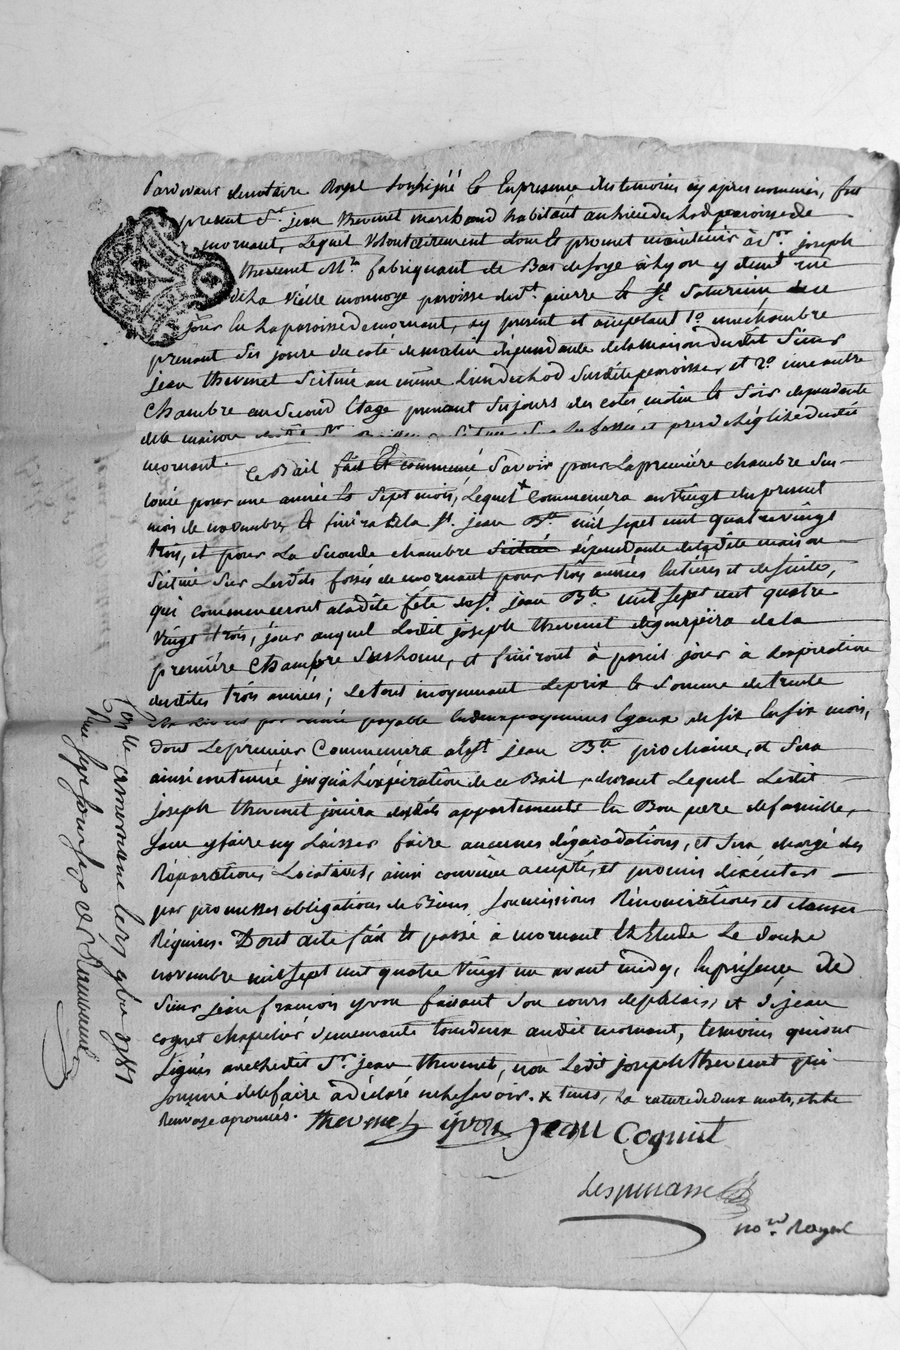 Pardevant le notaire Royal soussigné Et En presence des temoins cy apres nommés, fut
present Sr. jean thevenet marchand habitant au lieu du hod paroisse de
mornant, Lequel volontairement donne et promet maintenir à Sr. joseph
thevenet Md. fabriquant de Bas de soye à Lyon y demt. rue
de La vieille monnoye paroisse de St. pierre et St. Saturnin de ce
jour En La paroisse de mornant, cy present et acceptant 1o. une chambre
prenant ses jours du coté de matin dépendante de la maison dudit Sieur
jean thevenet Scituée au même Lieu du hod susdite paroisse, et 2o. une autre
chambre au second Etage prenant ses jours des cotés matin et soir dependante
de la maison Scituée Sur les fossés et près de l'églize dudit
mornant. Ce Bail fait Et commencé Savoir pour La première chambre Sus-
louée pour une année Et Sept mois, Lequel x Commencera au vingt du present
mois de novembre, Et finira à La St. jean Bte. mil sept cent quatre vingt
trois, et pour La Seconde chambre Scituée dépendante de ladite maison
Scituée Sur Lesdits fossés de mornant pour trois années Entières et de suite,
qui commenceront à ladite fête de St. jean Bte. mil sept cent quatre
vingt trois, jour auquel Ledit joseph thevenet déguerpira de la
première chambre Suslouée, et finiront à pareil jour à L'expiration
desdites trois années; Le tout moyennant Le prix Et Somme de trente
six Livres par année payable En deux payemens Egaux de six En six mois,
dont Le premier Commencera à la St. jean Bte. prochaine, et Sera
ainsi continué jusqu'à L'expiration de ce Bail, durant Lequel Ledit
joseph thevenet jouira desdits appartements En Bon père de famille,
Sans y faire ny Laisser faire aucunes dégradations, et Sera chargé des
Réparations Locatives, ainsi convenu accepté, et promis d'exécuter
par promesses obligations de Biens Soumissions Rénonciations et clauses
Réquises. Dont acte fait Et passé à mornant En Etude Le douze
novembre mil sept cent quatre vingt un avant midy, En présence de
Sieur jean francois yvon faisant Son cours de palais, et de jean
cognet chapelier demeurants tous deux audit mornant, temoins qui ont
Signés avec ledit Sr. jean thevenet, non Ledit joseph thevenet qui
sommé de le faire à déclaré ne le savoir. x tems, La rature de deux mots, et le
Renvoy approuvés. thevenet yvon jean Cognet
Lespinasse
no.re Royal
Con.lle à mornant le 13 9bre 1781